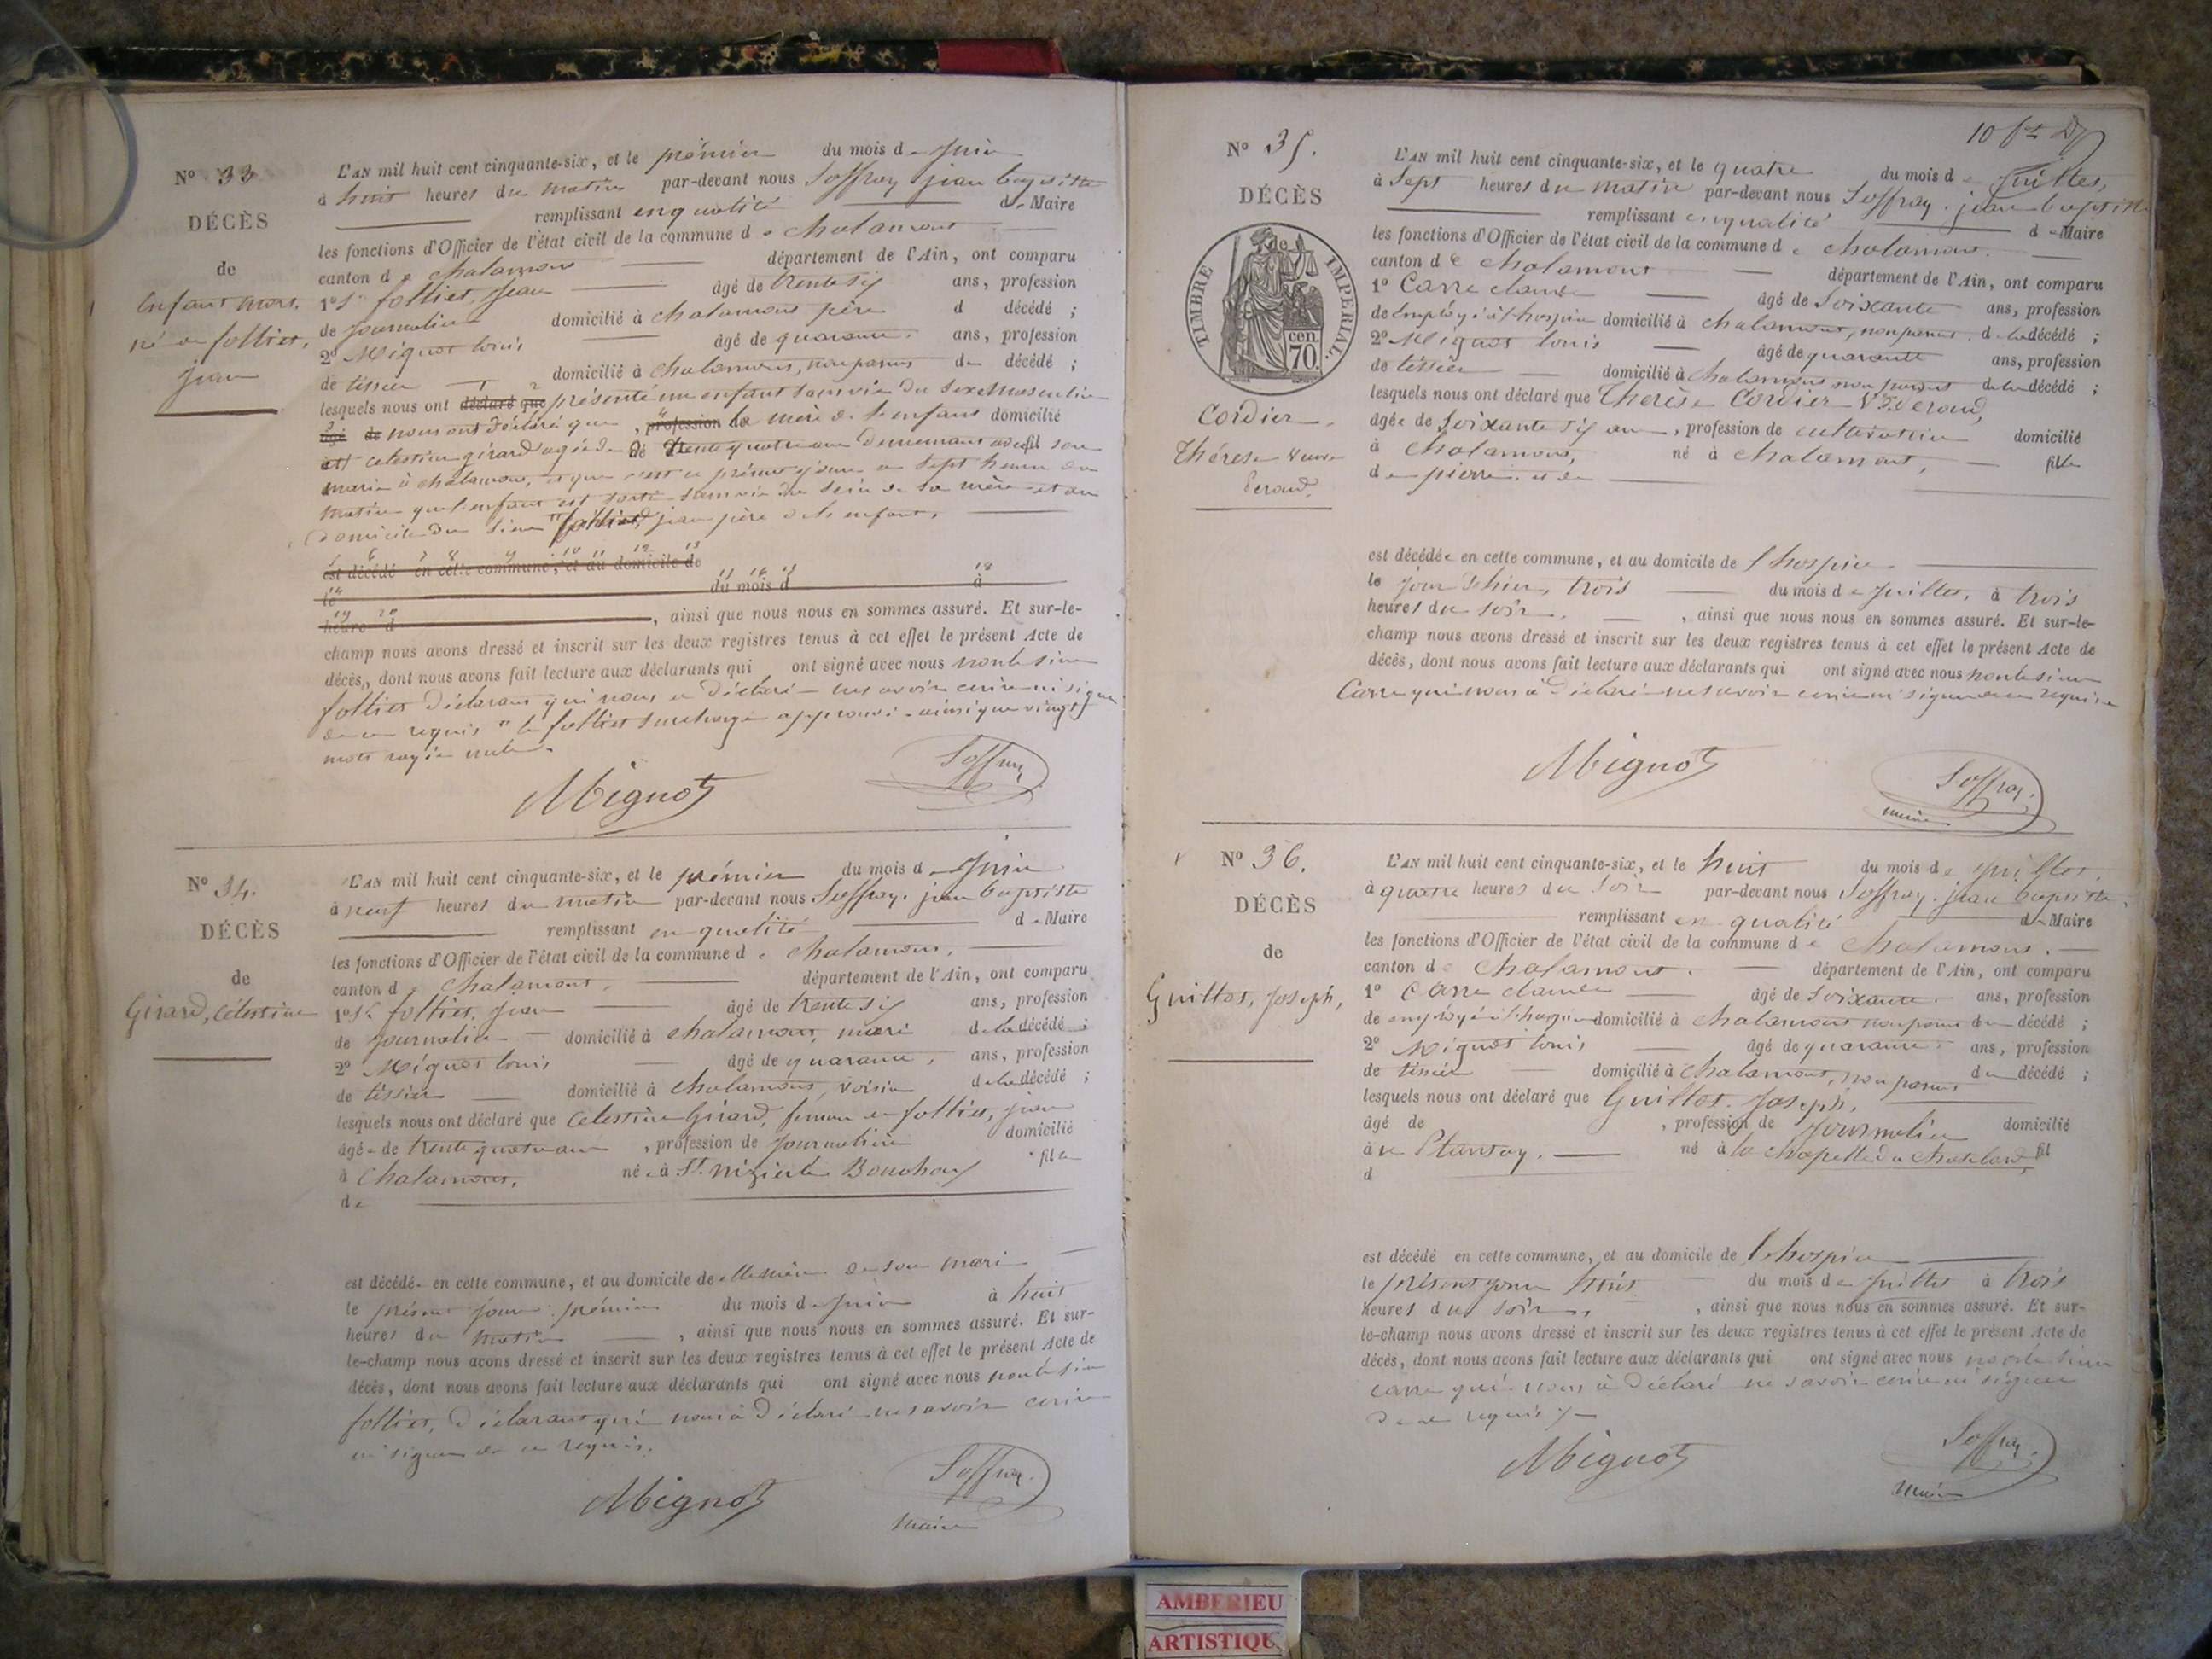 N° 33
DÉCÈS
de
Enfant mort.
né de folliet,
jean
L'AN mil huit cent cinquante-six, et le prémier du mois de juin
à huit heures du matin par-devant nous Soffray jean baptiste
remplissant en qualité de Maire
les fonctions d'Officier de l'état civil de la commune de chalamont
canton de chalamont département de l'Ain, ont comparu
1° Sr folliet, Jean âgé de trente six ans, profession
de journalier domicilié à chalamont père d décédé ;
2° Mignot louis âgé de quarante ans, profession
de tissier domicilié à chalamont, non parent du décédé ;
lesquels nous ont déclaré que présenté un enfant sans vie du sexe Masculin
âgé de nous ont déclaré que, profession la mère de l'enfant domicilié
est celestine girard agée de trente quatre ans demeurant avec fil son
marie à chalamont, et que c'est ce présent jour a sept heures du
matin que l'enfant est sorti sans vie du sein de sa mère et au
domicile du sieur "folliet" jean père de l'enfant.
est décédé en cette commune, et au domicile de
le du mois d à
heure d , ainsi que nous nous en sommes assuré. Et sur-le-
champ nous avons dressé et inscrit sur les deux registres tenus à cet effet le présent Acte de
décès, dont nous avons fait lecture aux déclarants qui ont signé avec nous non le sieur
folliet déclarant qui nous a déclaré ne savoir écrire ni signer
de ce requis " le folliet surchargé approuvé ainsi que vingt
mots rayés nuls.
Mignot Soffray
N° 34.
DÉCÈS
de
Girard, Célestine
L'AN mil huit cent cinquante-six, et le prémier du mois de juin
à neuf heures du matin par-devant nous Soffray. jean baptiste
remplissant en qualité de Maire
les fonctions d'Officier de l'état civil de la commune de chalamont,
canton de chalamont, département de l'Ain, ont comparu
1° Sr folliet, jean âgé de trente six ans, profession
de journalier domicilié à chalamont, mari de la décédée ;
2° Mignot louis âgé de quarante, ans, profession
de tissier domicilié à chalamont, voisin de la décédée ;
lesquels nous ont déclaré que Celestine Girard, femme de folliet, jean
âgée de trente quatre ans, profession de journalière domicilié
à Chalamont, née à St. nizier le Bouchoux fille
de
est décédée en cette commune, et au domicile de elle même de son mari
le présent jour prémier du mois de juin à huit
heures du matin , ainsi que nous nous en sommes assuré. Et sur-
le-champ nous avons dressé et inscrit sur les deux registres tenus à cet effet le présent Acte de
décès, dont nous avons fait lecture aux déclarants qui ont signé avec nous non le sieur
folliet, déclarant qui nous à déclaré ne savoir écrire
ni signer de ce requis.
Mignot Soffray.
Maire
N° 35.
DÉCÈS
de
TIMBRE IMPÉRIAL.
cen.
70.
Cordier,
Thérèse Veuve
Peraud.
L'AN mil huit cent cinquante-six, et le quatre du mois de juillet,
à Sept heures du matin par-devant nous Soffray. jean baptiste
remplissant en qualité de Maire
les fonctions d'Officier de l'état civil de la commune de chalamont.
canton de chalamont département de l'Ain, ont comparu
1° Carre claude âgé de Soixante ans, profession
de employé à l'hospice domicilié à chalamont, non parent. de la décédée ;
2° Mignot louis âgé de quarante ans, profession
de tissier domicilié à chalamont non parent de la décédée ;
lesquels nous ont déclaré que Thérèse Cordier
âgée de Soixante six ans, profession de cultivatrice domicilié
à Chalamont, né à Chalamont, fille
de pierre, et de
est décédée en cette commune, et au domicile de l'hospice
le jour d'hier, trois du mois de juillet, à trois
heures du soir. , ainsi que nous nous en sommes assuré. Et sur-le-
champ nous avons dressé et inscrit sur les deux registres tenus à cet effet le présent Acte de
décès, dont nous avons fait lecture aux déclarants qui ont signé avec nous non le sieur
Carre qui nous a déclaré ne savoir écrire ni signer de ce requis
Mignot Soffray.
maire
N° 36.
DÉCÈS
de
Guillot, Joseph,
L'AN mil huit cent cinquante-six, et le huit du mois de juillet.
à quatre heures du soir par-devant nous Soffray. jean baptiste,
remplissant en qualité de Maire
les fonctions d'Officier de l'état civil de la commune de Chalamont.
canton de Chalamont. département de l'Ain, ont comparu
1° Carre claude âgé de Soixante. ans, profession
de employé à l'hospice domicilié à chalamont non parent du décédé ;
2° Mignot louis âgé de quarante ans, profession
de tissier domicilié à chalamont, non parent du décédé ;
lesquels nous ont déclaré que Guillot. Joseph,
âgé de , profession de journalier domicilié
à né à la chapelle du Chatelard, fil
d
est décédé en cette commune, et au domicile de l'hospice
le présent jour huit du mois de juillet à trois
heures du soir, , ainsi que nous nous en sommes assuré. Et sur-
le-champ nous avons dressé et inscrit sur les deux registres tenus à cet effet le présent Acte de
décès, dont nous avons fait lecture aux déclarants qui ont signé avec nous non le sieur
carre qui nous à déclaré ne savoir écrire ni signer
de ce requis
Mignot Soffray.
Maire
AMBERIEU
ARTISTIQUE